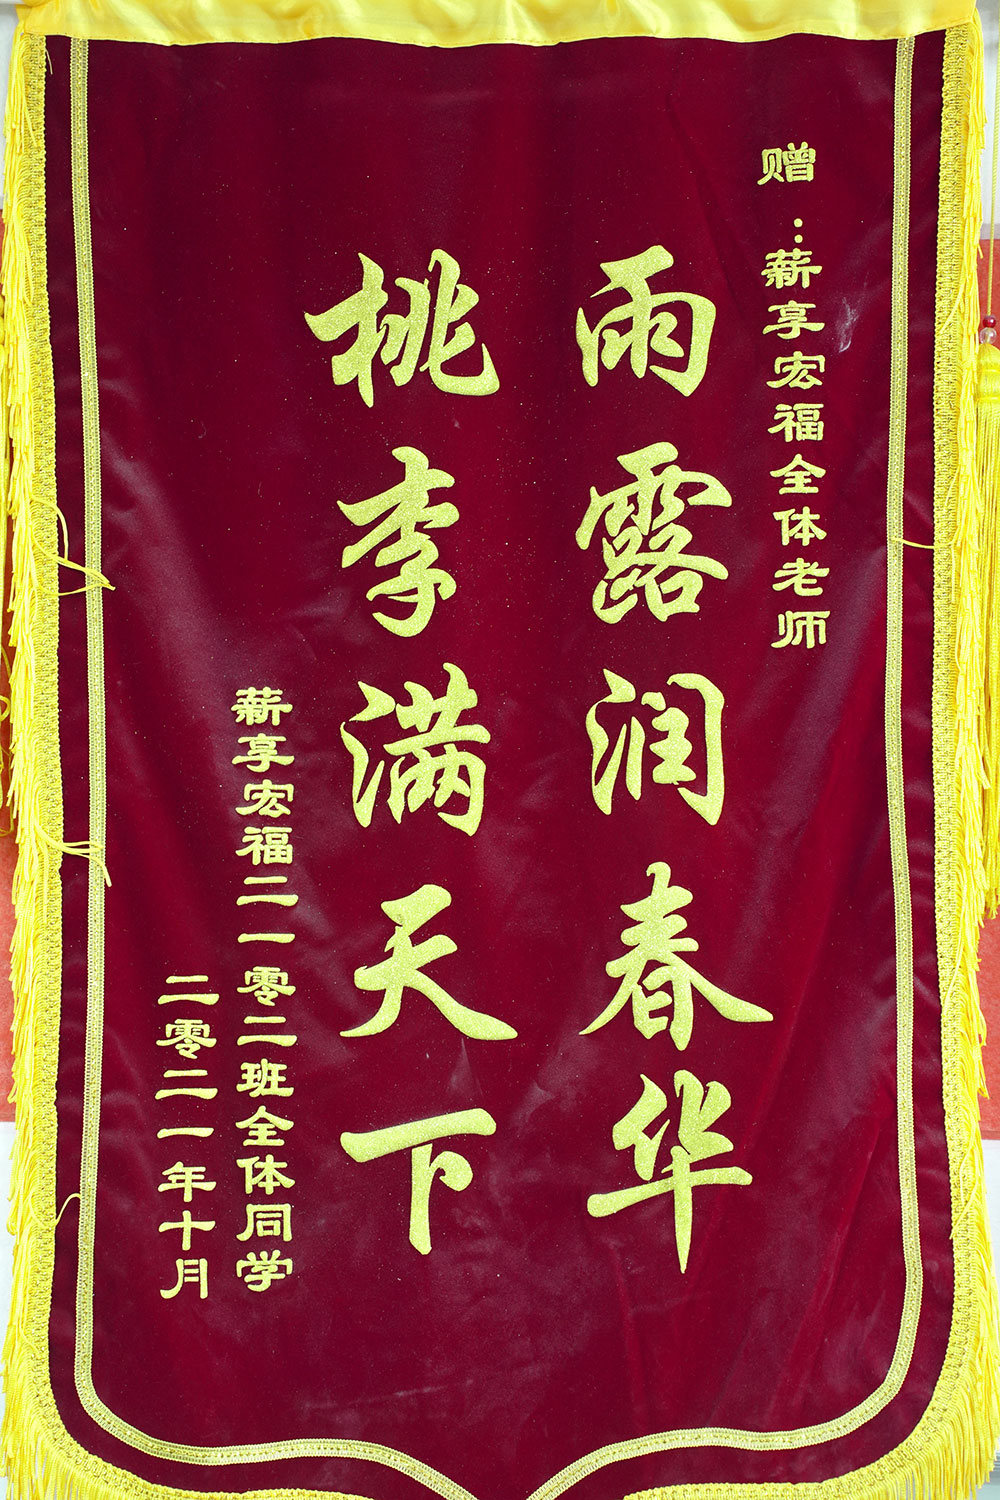 赠：薪享宏福全体老师
雨露润春华
桃李满天下
薪享宏福二一零二班全体同学
二零二一年十月